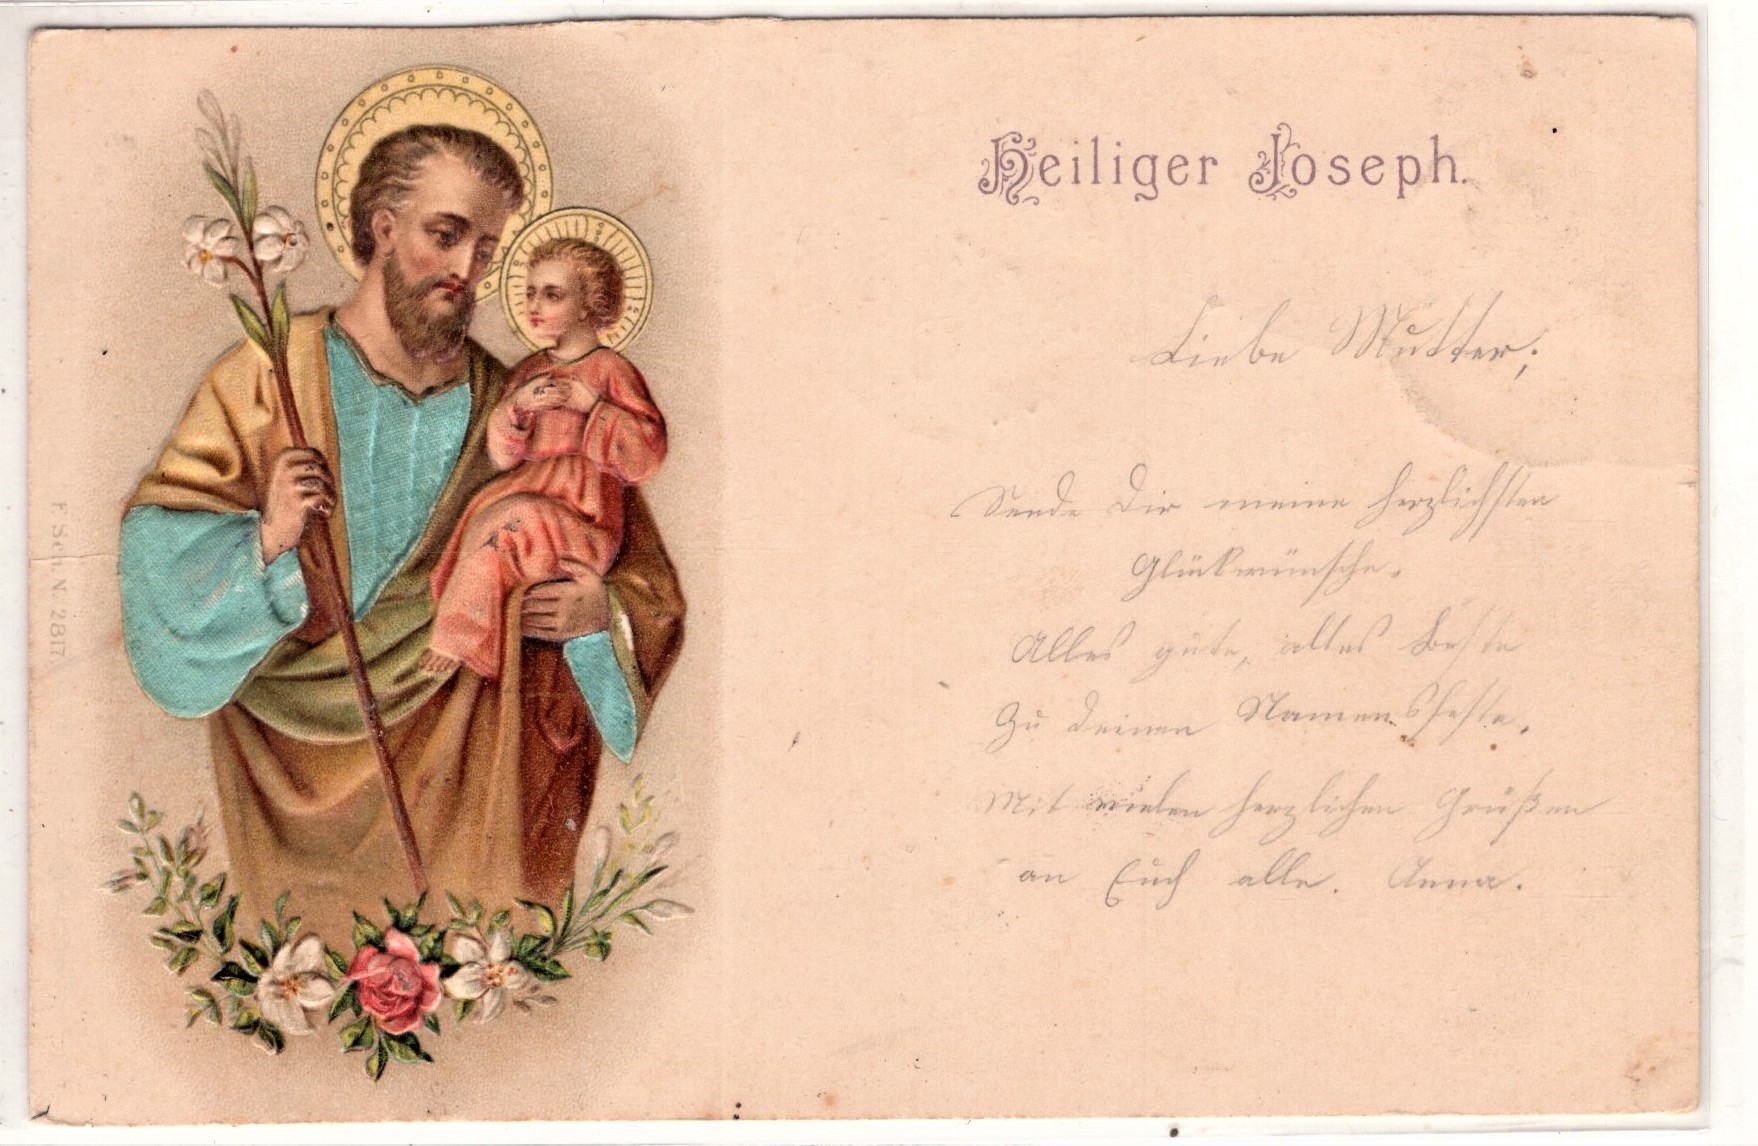 Heiliger Joseph.
Liebe Mutter,
Sende Dir meine herzlichsten
Glückwünsche.
Alles gute, alles Beste
Zu deinen Namensfeste.
Mit vielen herzlichen Grüßen
an Euch alle. Anna.
F. Sch. N. 2817.